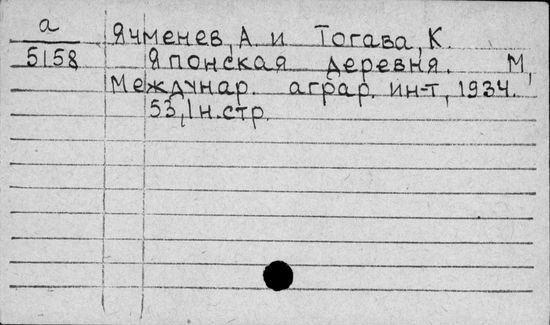 а Ячменев, А. и Тогава, К.
5158 Японская деревня. М,
Междунар. аграр. ин-т, 1934.
53, 1н.стр.